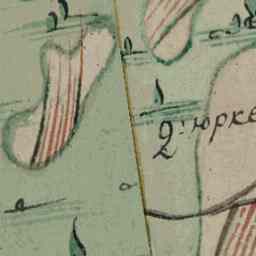 2: юрке